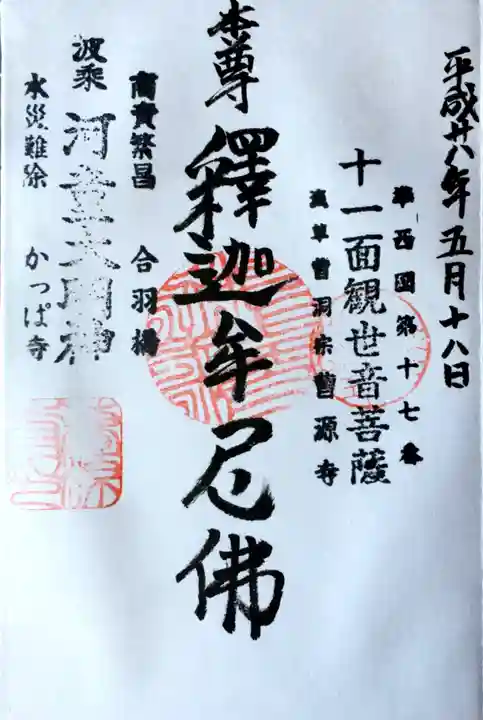 平成廿八年五月十八日
準西國第十七番
十一面観世音菩薩
浅草曹洞宗曹源寺
本尊 釋迦牟尼佛
商賣繁昌 合羽橋
波乗 河童大明神
水災難除 かっぱ寺